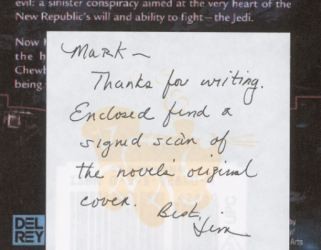 evil: a sinister conspiracy aimed at the very heart of the
New Republic's will and ability to fight—the Jedi.
Now
the h
Chewb
being
Mark ~
Thanks for writing.
Enclosed find a
signed scan of
the novel's original
cover. Best,
Jim
DEL
REY
UPC
by
Arts